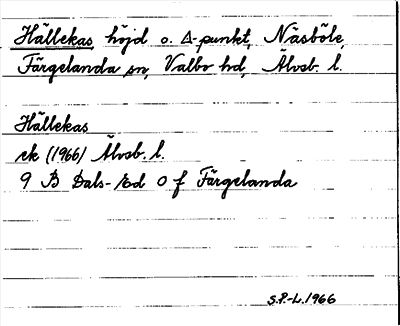 Hällekas, höjd o. Δ-punkt, Näsböle,
Färgelanda sn, Valbo hd, Älvsb. l.
Hällekas
ek (1966) Älvsb. l.
9 B Dals-Ed O f Färgelanda
S.P.-L. 1966